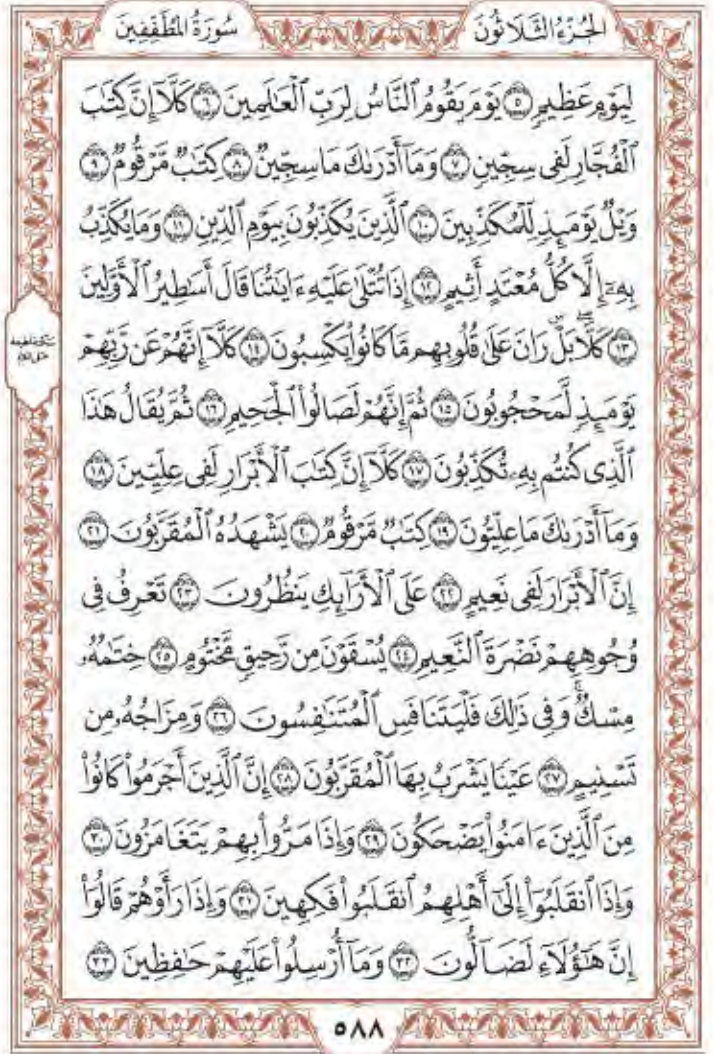 سُورَةُ المُطَفِّفِينَ
الجُزْءُ الثَّلَاثُونَ
لِيَوْمٍ عَظِيمٍ ۝٥ يَوْمَ يَقُومُ ٱلنَّاسُ لِرَبِّ ٱلْعَٰلَمِينَ ۝٦ كَلَّآ إِنَّ كِتَٰبَ
ٱلْفُجَّارِ لَفِى سِجِّينٍ ۝٧ وَمَآ أَدْرَىٰكَ مَا سِجِّينٌ ۝٨ كِتَٰبٌ مَّرْقُومٌ ۝٩
وَيْلٌ يَوْمَئِذٍ لِّلْمُكَذِّبِينَ ۝١٠ ٱلَّذِينَ يُكَذِّبُونَ بِيَوْمِ ٱلدِّينِ ۝١١ وَمَا يُكَذِّبُ
بِهِۦٓ إِلَّا كُلُّ مُعْتَدٍ أَثِيمٍ ۝١٢ إِذَا تُتْلَىٰ عَلَيْهِ ءَايَٰتُنَا قَالَ أَسَٰطِيرُ ٱلْأَوَّلِينَ
۝١٣ كَلَّا ۖ بَلْ ۜ رَانَ عَلَىٰ قُلُوبِهِم مَّا كَانُوا۟ يَكْسِبُونَ ۝١٤ كَلَّآ إِنَّهُمْ عَن رَّبِّهِمْ
يَوْمَئِذٍ لَّمَحْجُوبُونَ ۝١٥ ثُمَّ إِنَّهُمْ لَصَالُوا۟ ٱلْجَحِيمِ ۝١٦ ثُمَّ يُقَالُ هَٰذَا
ٱلَّذِى كُنتُم بِهِۦ تُكَذِّبُونَ ۝١٧ كَلَّآ إِنَّ كِتَٰبَ ٱلْأَبْرَارِ لَفِى عِلِّيِّينَ ۝١٨
وَمَآ أَدْرَىٰكَ مَا عِلِّيُّونَ ۝١٩ كِتَٰبٌ مَّرْقُومٌ ۝٢٠ يَشْهَدُهُ ٱلْمُقَرَّبُونَ ۝٢١
إِنَّ ٱلْأَبْرَارَ لَفِى نَعِيمٍ ۝٢٢ عَلَى ٱلْأَرَآئِكِ يَنظُرُونَ ۝٢٣ تَعْرِفُ فِى
وُجُوهِهِمْ نَضْرَةَ ٱلنَّعِيمِ ۝٢٤ يُسْقَوْنَ مِن رَّحِيقٍ مَّخْتُومٍ ۝٢٥ خِتَٰمُهُۥ
مِسْكٌ ۚ وَفِى ذَٰلِكَ فَلْيَتَنَافَسِ ٱلْمُتَنَٰفِسُونَ ۝٢٦ وَمِزَاجُهُۥ مِن
تَسْنِيمٍ ۝٢٧ عَيْنًا يَشْرَبُ بِهَا ٱلْمُقَرَّبُونَ ۝٢٨ إِنَّ ٱلَّذِينَ أَجْرَمُوا۟ كَانُوا۟
مِنَ ٱلَّذِينَ ءَامَنُوا۟ يَضْحَكُونَ ۝٢٩ وَإِذَا مَرُّوا۟ بِهِمْ يَتَغَامَزُونَ ۝٣٠
وَإِذَا ٱنقَلَبُوٓا۟ إِلَىٰٓ أَهْلِهِمُ ٱنقَلَبُوا۟ فَكِهِينَ ۝٣١ وَإِذَا رَأَوْهُمْ قَالُوٓا۟
إِنَّ هَٰٓؤُلَآءِ لَضَآلُّونَ ۝٣٢ وَمَآ أُرْسِلُوا۟ عَلَيْهِمْ حَٰفِظِينَ ۝٣٣
٥٨٨